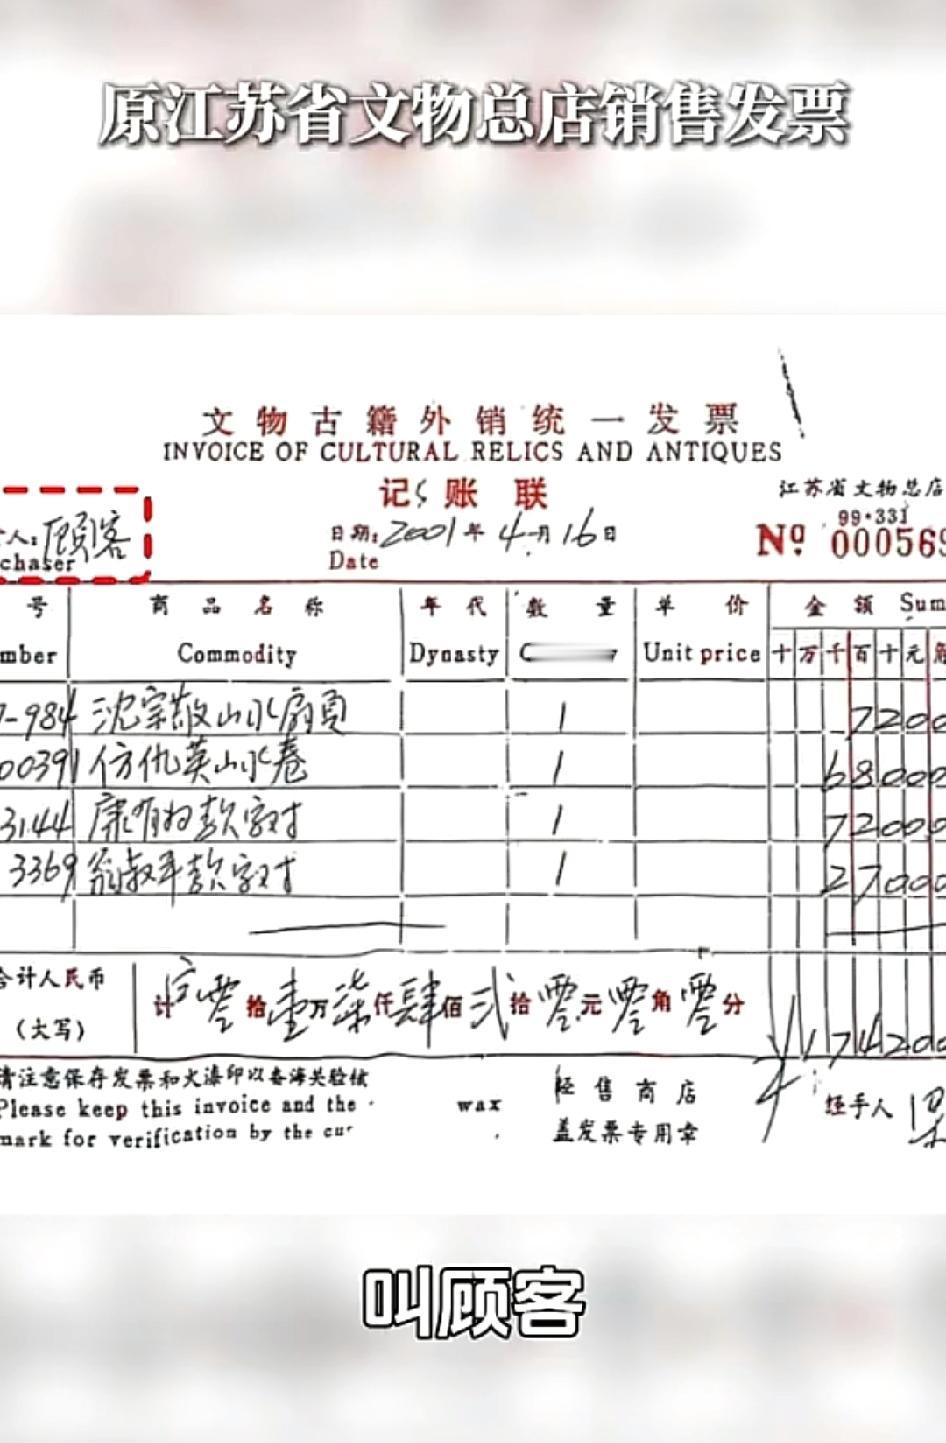 原江苏省文物总店销售发票
文物古籍外销统一发票
INVOICE OF CULTURAL RELICS AND ANTIQUES
记账联
江苏省文物总店
99·331
人: 顾客
chaser
日期: 2001年 4月 16日
Date
Nº 000569
号 商品名称 年代 数量 单价 金额 Sum
mber Commodity Dynasty Unit price 十 万 千 百 十 元
-984 沈宗敬山水扇页 1 7200
00391 仿仇英山水卷 1 68000
3144 康有为款字对 1 72000
3369 翁叔平款字对 1 27000
合计人民币
(大写)
计 零拾壹万柒仟肆佰贰拾零元零角零分
¥174200
请注意保存发票和火漆印以备海关验核
Please keep this invoice and the wax
mark for verification by the cu
经售商店
盖发票专用章
经手人
叫顾客